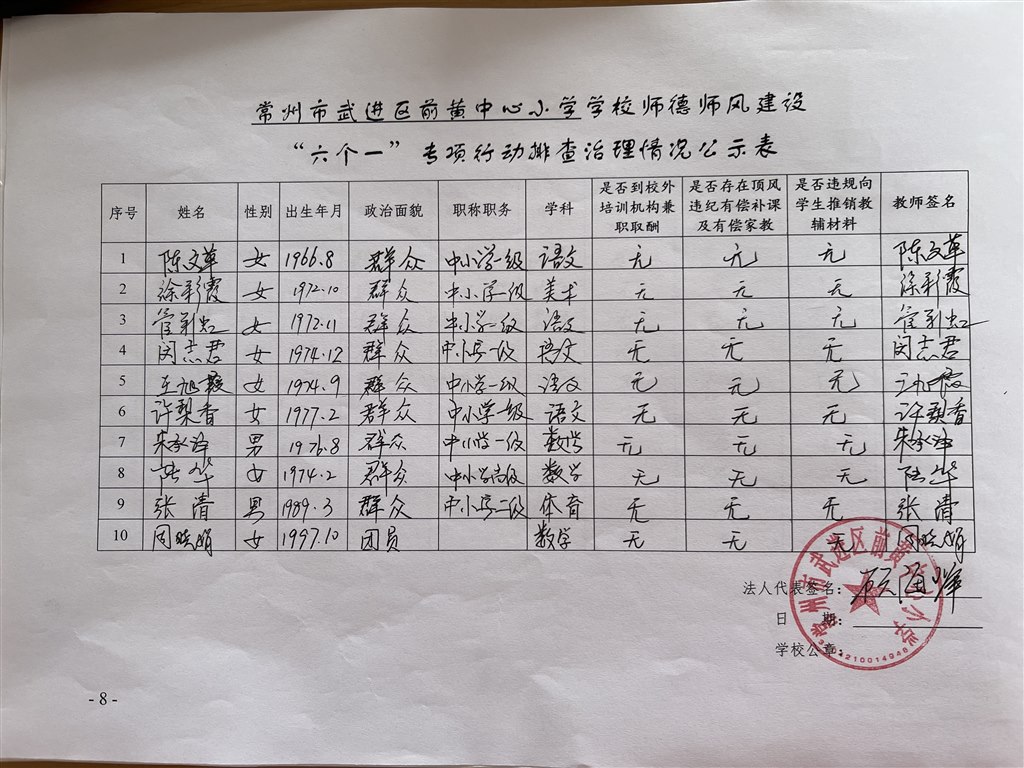 常州市武进区前黄中心小学学校师德师风建设
“六个一”专项行动排查治理情况公示表
序号 姓名 性别 出生年月 政治面貌 职称职务 学科 是否到校外培训机构兼职取酬 是否存在顶风违纪有偿补课及有偿家教 是否违规向学生推销教辅材料 教师签名
1 陈文革 女 1966.8 群众 中小学一级 语文 无 无 无 陈文革
2 徐彩霞 女 1972.10 群众 中小学一级 美术 无 无 无 徐彩霞
3 管彩虹 女 1972.11 群众 中小学一级 语文 无 无 无 管彩虹
4 闵志君 女 1974.12 群众 中小学一级 语文 无 无 无 闵志君
5 王旭霞 女 1974.9 群众 中小学一级 语文 无 无 无 王旭霞
6 许梨香 女 1977.2 群众 中小学一级 语文 无 无 无 许梨香
7 朱 男 1976.8 群众 中小学一级 数学 无 无 无 朱
8 陆华 女 1974.2 群众 中小学高级 数学 无 无 无 陆华
9 张清 男 1989.3 群众 中小学二级 体育 无 无 无 张清
10 周晓娟 女 1997.10 团员 数学 无 无 无 周晓娟
法人代表签名：顾海烽
日 期：
学校公章：
常州市武进区前黄中心小学
- 8 -